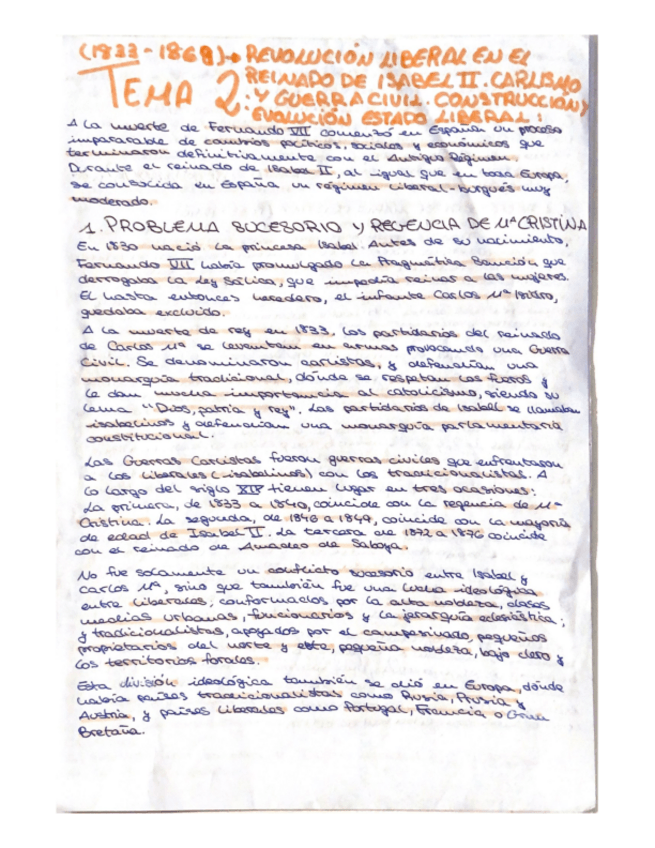 (1833-1868)→ REVOLUCIÓN LIBERAL EN EL
TEMA 2: REINADO DE ISABEL II. CARLISMO
Y GUERRA CIVIL. CONSTRUCCIÓN Y
EVOLUCIÓN ESTADO LIBERAL:
A la muerte de Fernando VII comenzó en España un proceso
imparable de cambios políticos, sociales y económicos que
terminaron definitivamente con el Antiguo Régimen.
Durante el reinado de Isabel II, al igual que en toda Europa,
se consolida en España un régimen liberal-burgués muy
moderado.
1. PROBLEMA SUCESORIO Y REGENCIA DE Mª CRISTINA
En 1830 nació la princesa Isabel. Antes de su nacimiento,
Fernando VII había promulgado la Pragmática Sanción que
derrogaba la Ley Sálica, que impedía reinar a las mujeres.
El hasta entonces heredero, el infante Carlos Mª Isidro,
quedaba excluido.
A la muerte de rey en 1833, los partidarios del reinado
de Carlos Mª se levantem en armas provocando una Guerra
Civil. Se denominaron carlistas, y defendían una
monarquía tradicional, dónde se respetan los fueros y
le dan mucha importancia al catolicismo, siendo su
lema "Dios, patria y rey". Los partidarios de Isabel se llamaban
isabelinos y defendían una monarquía parlamentaria
constitucional.
Las Guerras Carlistas fueron guerras civiles que enfrentaron
a los liberales (isabelinos) con los tradicionalistas. A
lo largo del siglo XIX tienen lugar en tres ocasiones:
La primera, de 1833 a 1840, coincide con la regencia de Mª
Cristina. La segunda, de 1846 a 1849, coincide con la mayoría
de edad de Isabel II. La tercera de 1872 a 1876 coincide
con el reinado de Amadeo de Saboya.
No fue solamente un conflicto sucesorio entre Isabel y
Carlos Mª, sino que también fue una lucha ideológica
entre liberales, conformados por la alta nobleza, clases
medias urbanas, funcionarios y la jerarquía eclesiástica;
y tradicionalistas, apoyados por el campesinado, pequeños
propietarios del norte y este, pequeña nobleza, bajo clero y
los territorios forales.
Esta división ideológica también se dió en Europa, dónde
había países tradicionalistas como Rusia, Prusia y
Austria, y países liberales como Portugal, Francia o Gran
Bretaña.